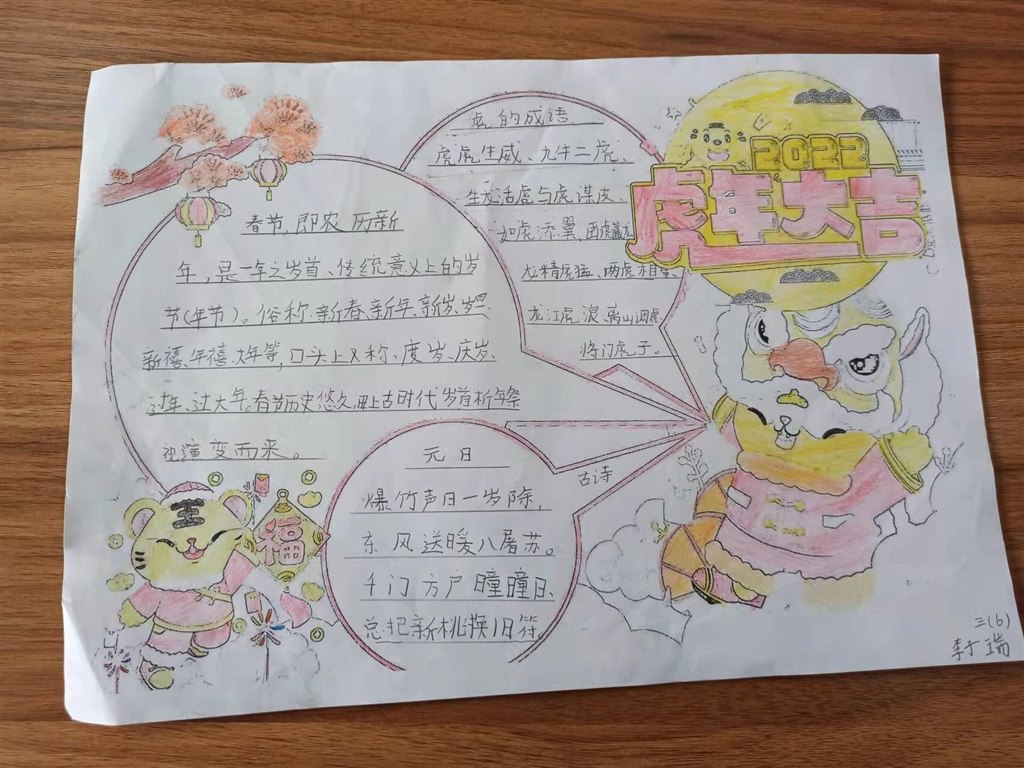 2022
虎年大吉
虎的成语
虎虎生威、九牛二虎、
生龙活虎与虎谋皮、
如虎添翼、
龙精虎猛、两虎相
龙江虎浪离山调虎、
将门虎子。
春节,即农历新
年,是一年之岁首、传统意义上的岁
节(年节)。俗称新春、新年、新岁、岁旦
新禧、年禧、大年等,口头上又称、度岁、庆岁、
过年、过大年。春节历史悠久,由上古时代岁首祈年祭
祀演变而来。
福
元日
爆竹声日一岁除,
东风送暖八屠苏。
千门万户瞳瞳日、
总把新桃换旧符
古诗
三(6)
李瑞